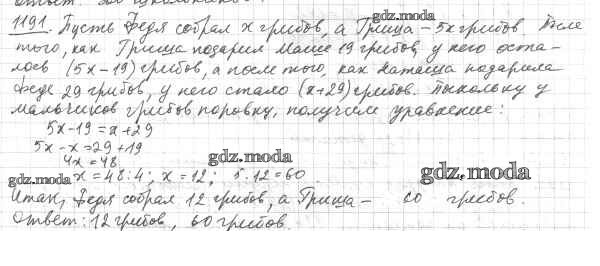 1191. Пусть Федя собрал x грибов, а Гриша – 5x грибов. После
того, как Гриша подарил Маше 19 грибов, у него оста-
лось (5x-19) грибов, а после того, как Наташа подарила
Феде 29 грибов, у него стало (x+29) грибов. Поскольку у
мальчиков грибов поровну, получим уравнение:
5x-19=x+29
5x-x=29+19
4x=48
x=48:4; x=12; 5·12=60.
Итак, Федя собрал 12 грибов, а Гриша – 60 грибов.
Ответ: 12 грибов, 60 грибов.
gdz.moda
gdz.moda
gdz.moda
gdz.moda